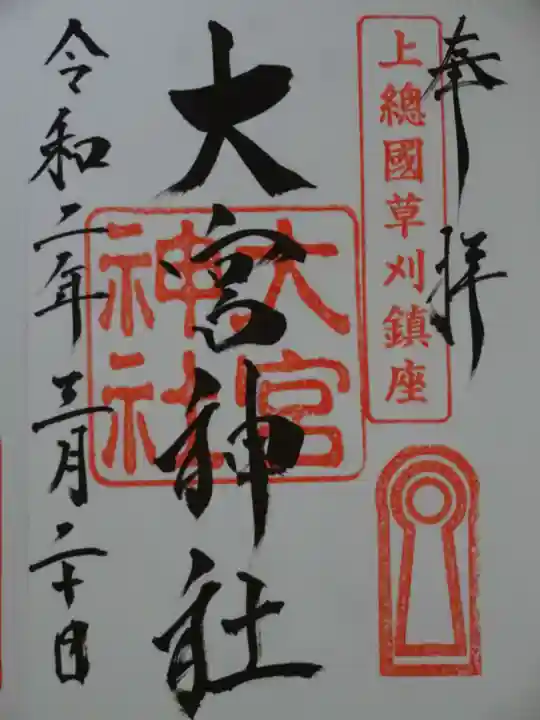 奉拝
上總國草刈鎮座
大宮神社
大宮
神社
令和二年三月二十日